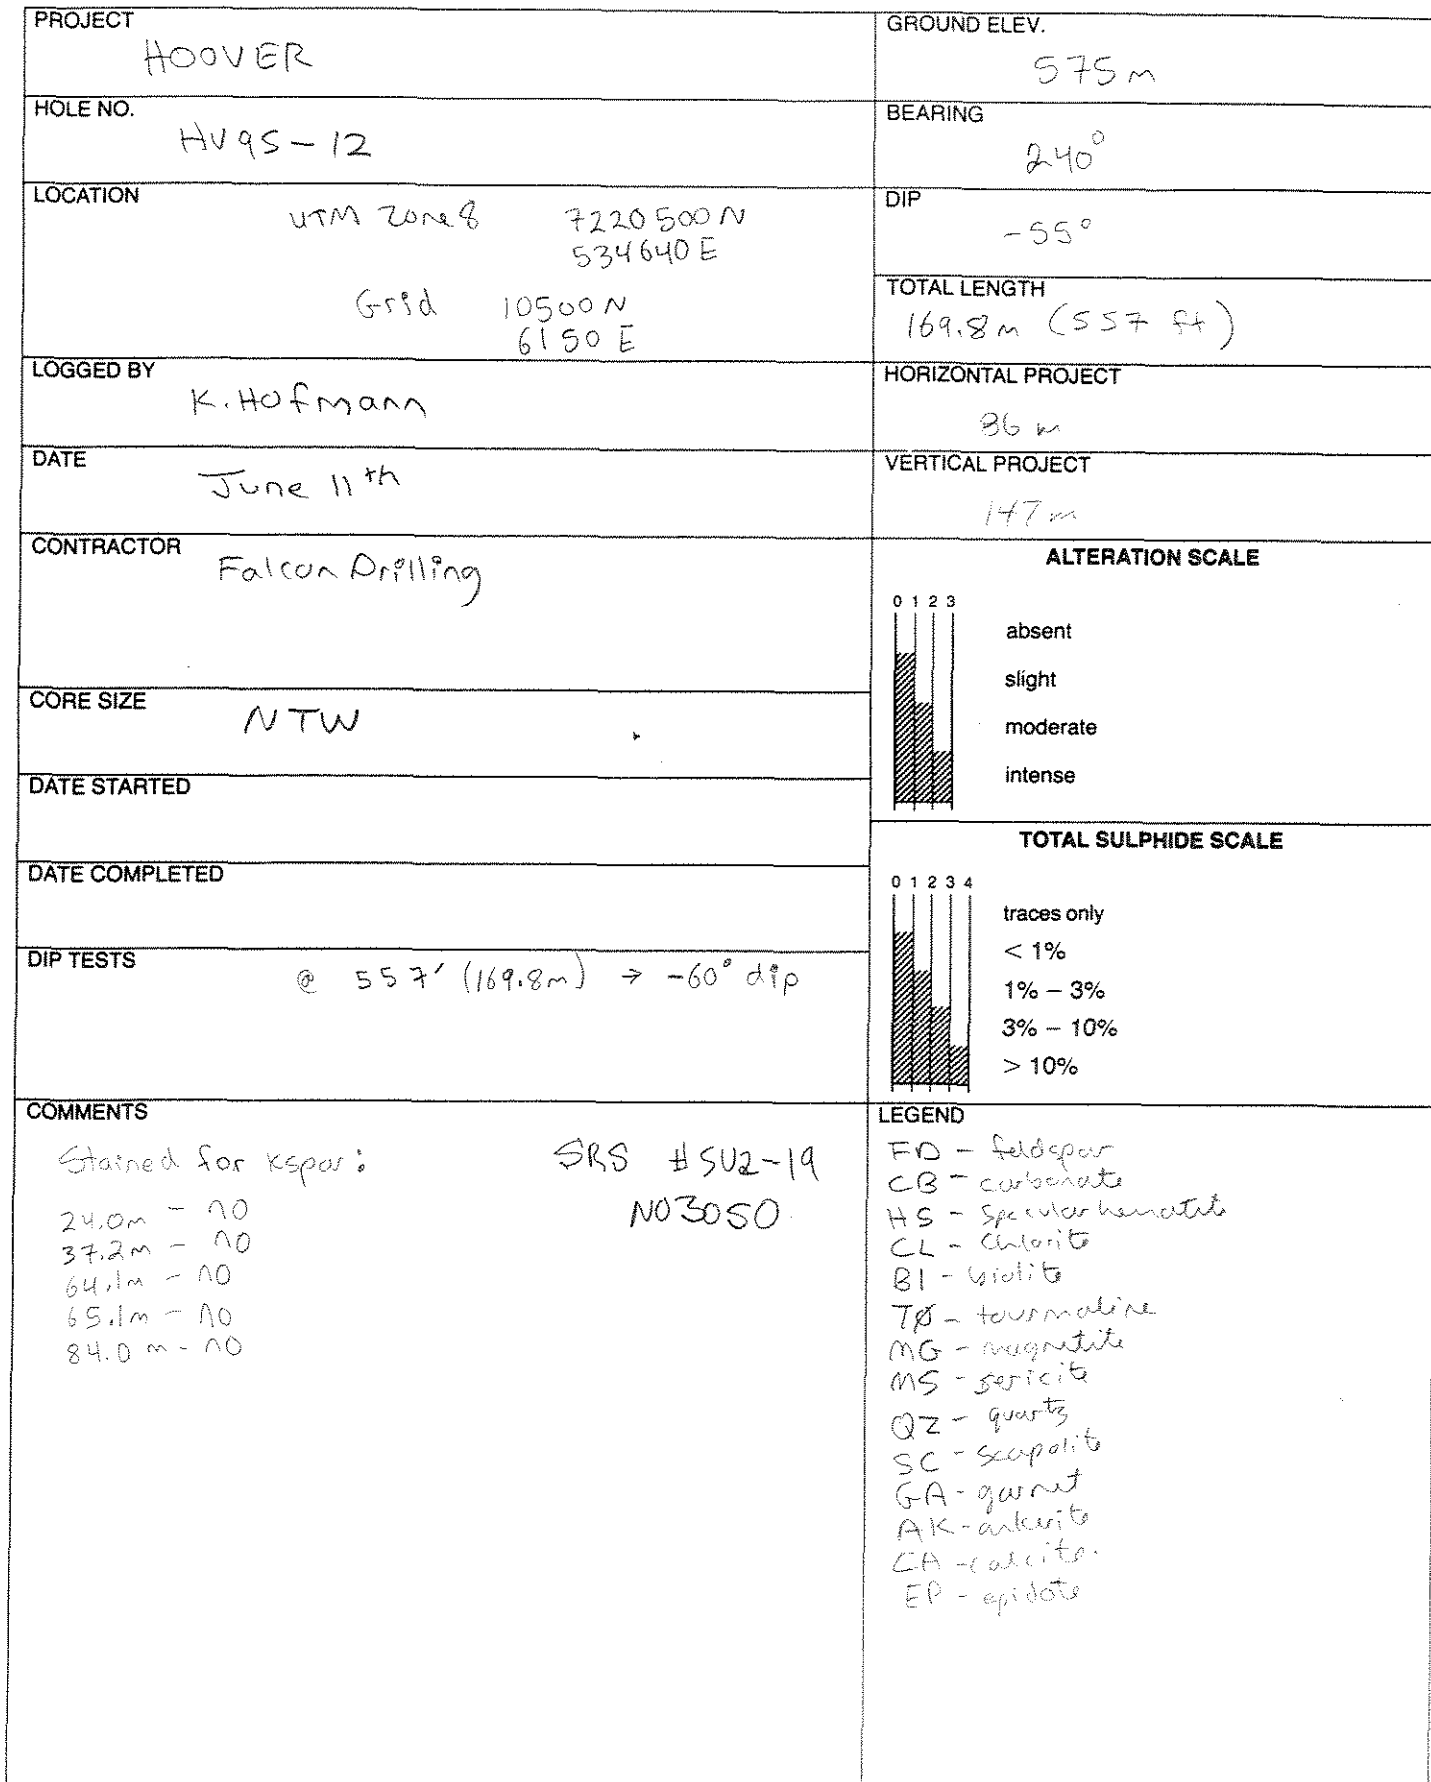 PROJECT
HOOVER
HOLE NO.
HV95-12
LOCATION
UTM Zone 8 7220500N
534640E
Grid 10500N
6150E
LOGGED BY
K. Hofmann
DATE
June 11th
CONTRACTOR
Falcon Drilling
CORE SIZE
NTW
DATE STARTED
DATE COMPLETED
DIP TESTS
@ 557' (169.8m) → -60° dip
COMMENTS
Stained for Kspar:
24.0m - NO
37.2m - NO
64.1m - NO
65.1m - NO
84.0m - NO
SRS #SU2-19
NO3050
GROUND ELEV.
575m
BEARING
240°
DIP
-55°
TOTAL LENGTH
169.8m (557 ft)
HORIZONTAL PROJECT
86 m
VERTICAL PROJECT
147m
ALTERATION SCALE
0 1 2 3
absent
slight
moderate
intense
TOTAL SULPHIDE SCALE
0 1 2 3 4
traces only
< 1%
1% – 3%
3% – 10%
> 10%
LEGEND
FD - feldspar
CB - carbonate
HS - Specular hematite
CL - Chlorite
BI - biotite
TØ - tourmaline
MG - magnetite
MS - sericite
QZ - quartz
SC - scapolite
GA - garnet
AK - ankerite
CA - calcite.
EP - epidote